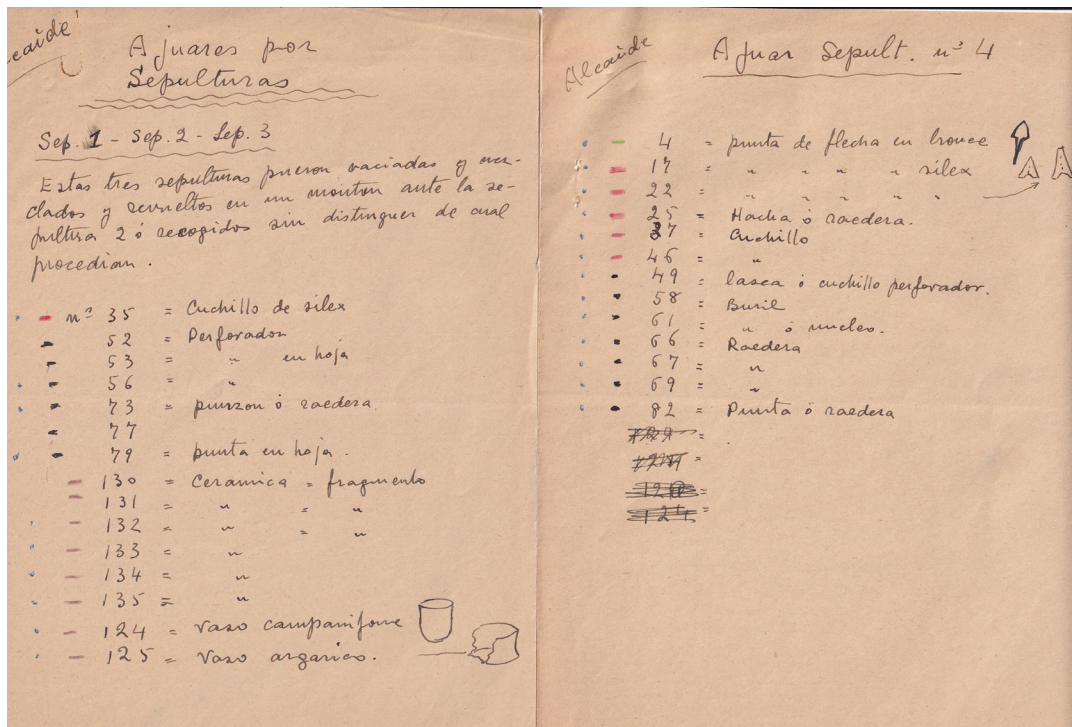 Alcaide
Ajuares por
Sepulturas
Sep. 1 - Sep. 2 - Sep. 3
Estas tres sepulturas fueron vaciadas y mez-
clados y revueltos en un monton ante la se-
pultura 2 ó recogidos sin distinguer de cual
procedian.
nº 35 = Cuchillo de silex
52 = Perforador
53 = " en hoja
56 = "
73 = punzon ó raedera.
77
79 = punta en hoja.
130 = Ceramica = fragmento
131 = " = "
132 = " = "
133 = "
134 = "
135 = "
124 = vaso campaniforme
125 = Vaso argarico.
Alcaide
Ajuar Sepult. nº 4
4 = punta de flecha en bronce
17 = " " " " silex
22 = " " " " "
25 = Hacha ó raedera.
37 = Cuchillo
46 = "
49 = lasca ó cuchillo perforador.
58 = Buril
61 = " ó nucleo.
66 = Raedera
67 = "
69 = "
82 = Punta ó raedera
=
=
=
=